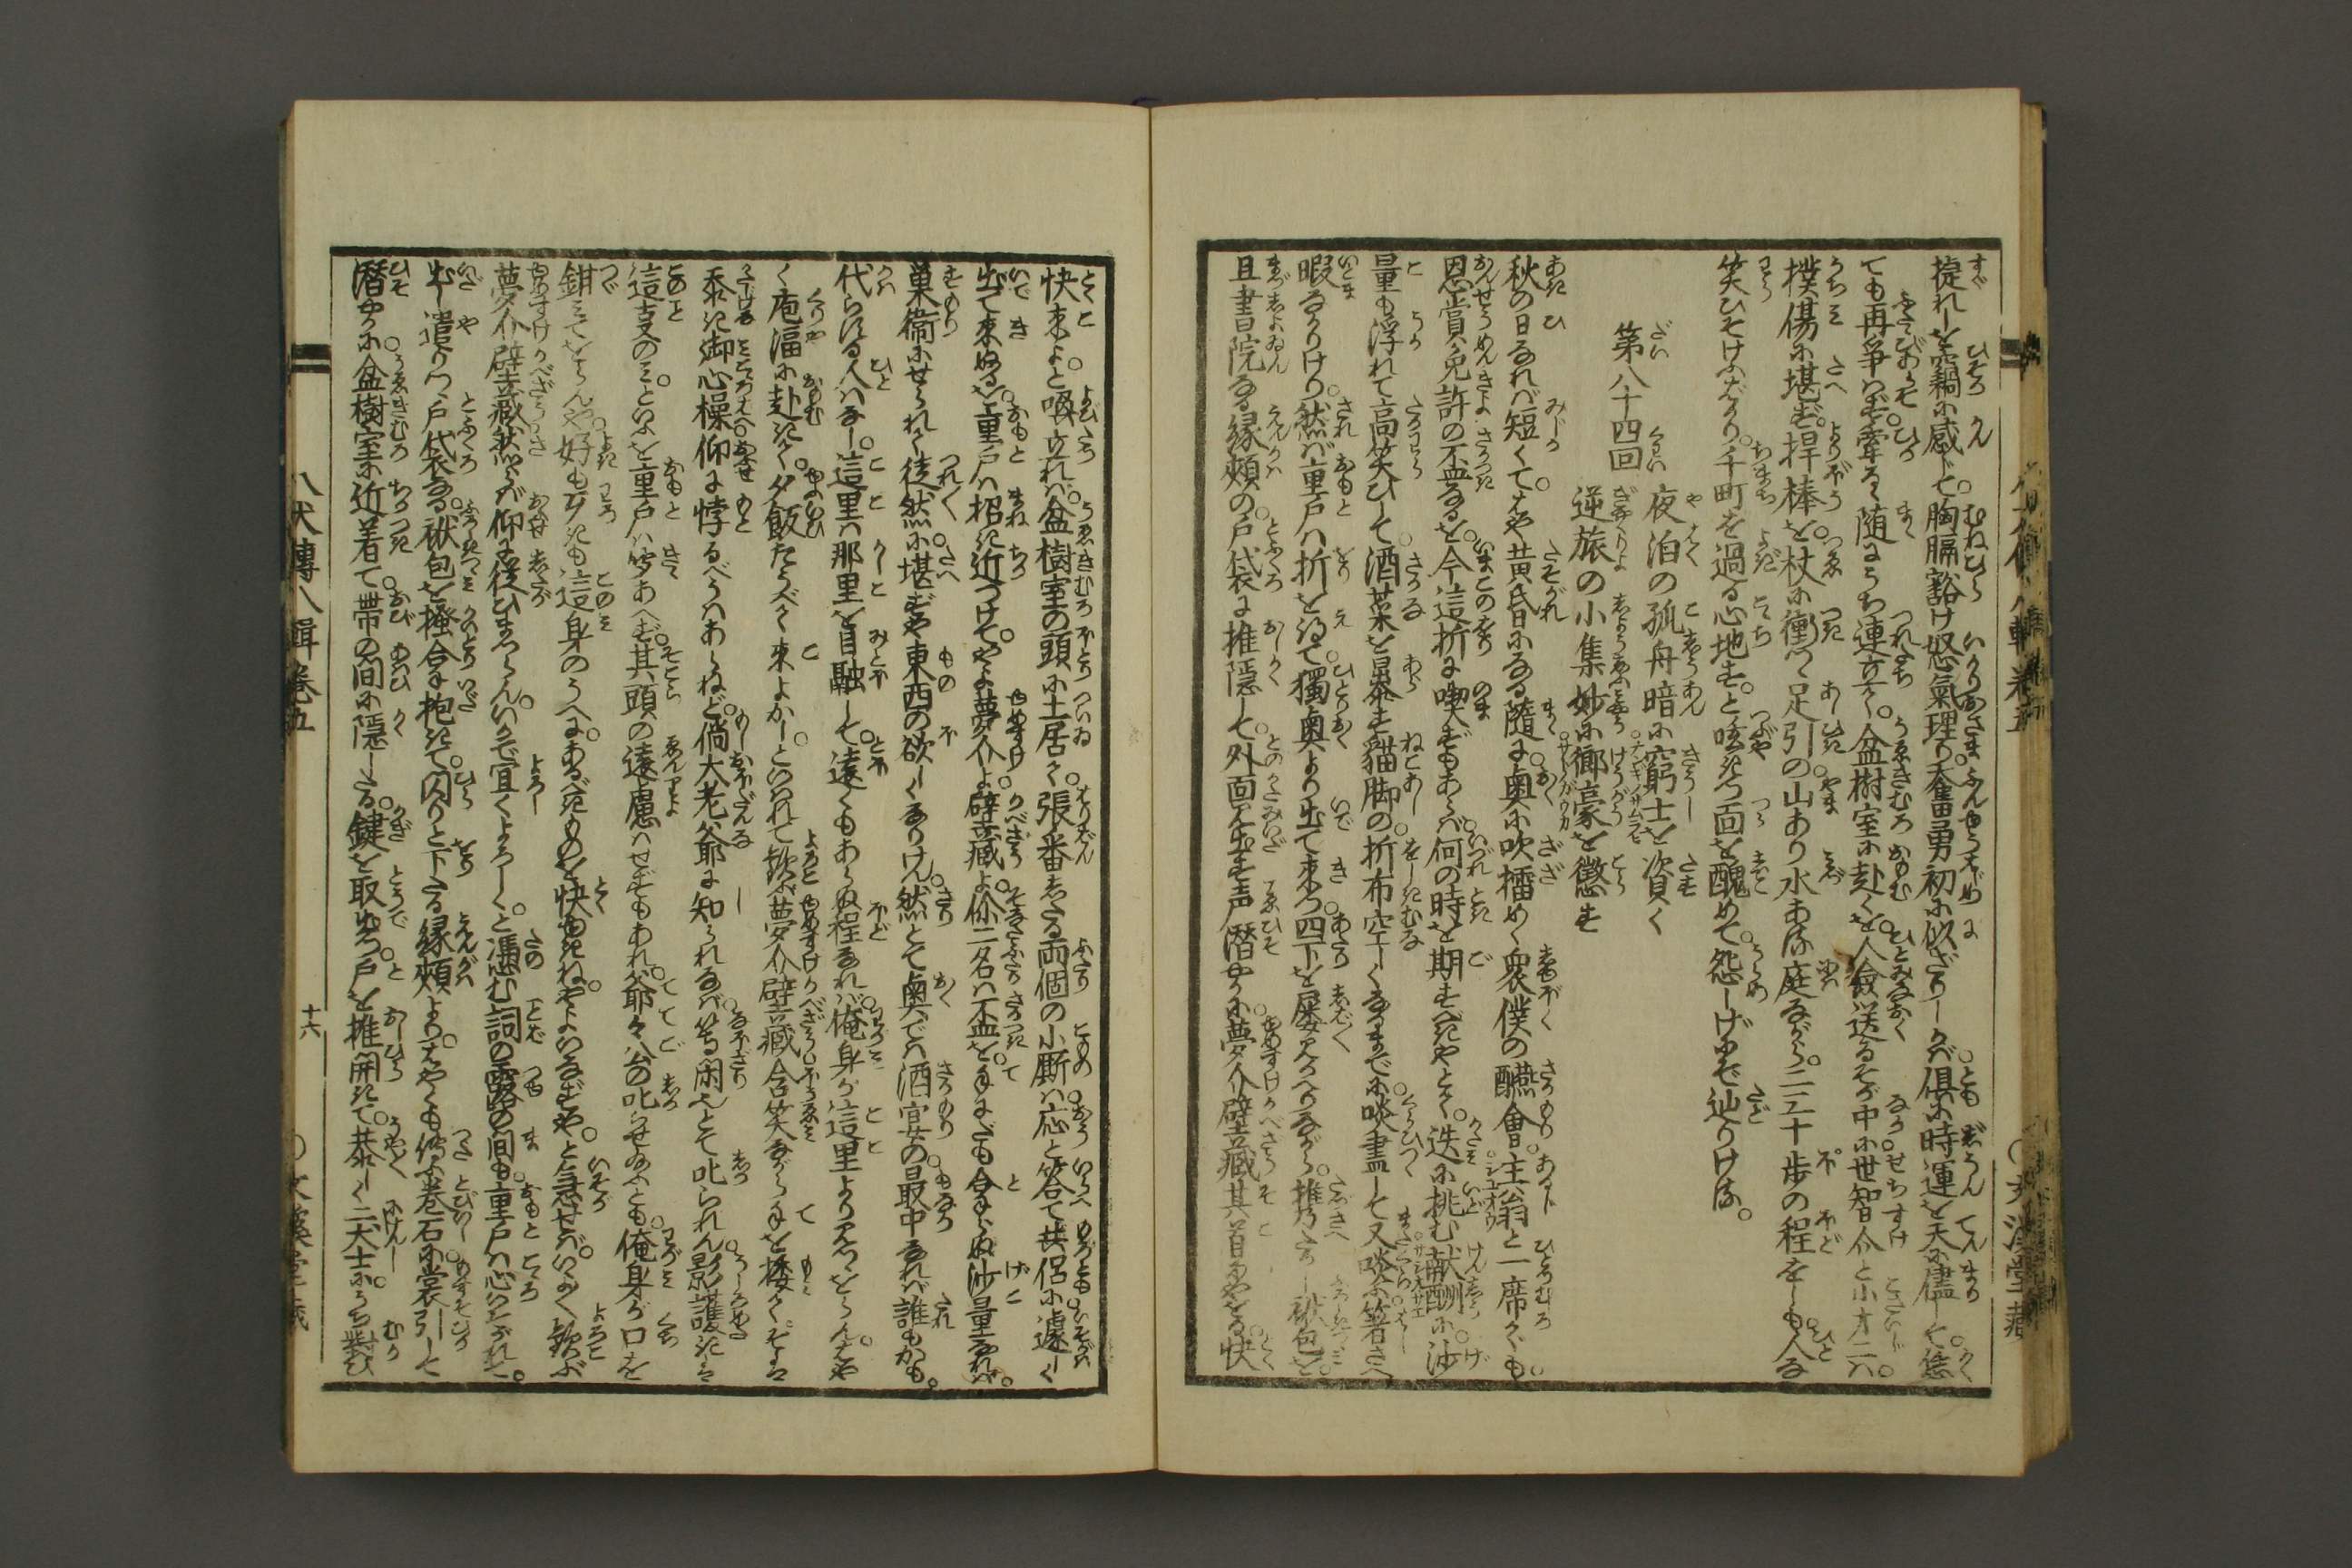 掟れしを窃に感じて。胸膈豁け怒氣理り。奮勇初に似ざりしかば。倶に時運を天に儘して。恁
ても再爭はず。牽るゝ随にうち連立て。盆樹室に赴くを。人僉送るそが中に。世智介と小才二は。
撲傷に堪ず。捍棒を。杖に衝つゝ足引の。山あり水ある庭ながら。二三十歩の程をしも。人な
笑ひそけふばかり。千町を過る心地す。と呟きつゝ面を醜めて。怨しげにぞ辿りける。
第八十四回
夜泊の孤舟暗に窮士を資く
逆旅の小集妙に郷豪を懲す
秋の日なれば短くて。はや黄昏になる隨に。奥に吹擂めく衆僕の醼會。主翁と一席ならぬも。
恩賞免許の不盃なるを。今這折に喫ずもあらば。何の時を期すべきやとて。迭に挑む献酬に。沙
量も浮れて高笑ひして。酒菜を暴す貓脚の。折布空しくなるまでに。啖盡して又啖ふ。箸さへ
暇なかりけり。然ば重戸は折を得て。獨奥より出て来つ。四下を屡見かへりながら。推乃たりし袱包を。
且書院なる縁頬の。戸袋に推隠して。外面見出す声潜やかに。夢介壁藏其首にをるや。快
快来よ。と喚立れば。盆樹室の頭に土居て。張番したる両個の小廝は。応と答て共侶に。遽しく
出て来ぬるを。重戸は招き近つけて。やよ夢介よ。壁藏よ。你二名は不盃を。手にだも合ぬ沙量なれば。
巣衞にせられて徒然に。堪ずや東西の欲しくなりけん。然とて奥では酒宴の。最中なれば誰もかも。
代らんる人はなし。這里は那里と目融して。遠くもあらぬ程なれば。俺身が這里より見つゝをらん。はや
く庖湢に赴きて。夕飯たうべて来よかし。といはれて歓ぶ夢介壁藏。含笑ながら手を搓て。そは
忝き御心操。仰に悖るべうはあらねど。倘大老爺に知られなば。等閑也とて叱られん。影護きは
這支のみ。といふを重戸は聞あへず。其頭の遠慮はせずもあれ。爺々公の叱らせ給ふとも。俺身が口を
鉗みてをらんや。好も歹きも這身のうへに。あるべきものを快ゆきね。やよいなずや。と急せば。いよゝ歓ぶ
夢介壁藏。然らば仰に従ひまつらん。いかで宜くよろしく。と憑む詞の露の間も。重戸は心いそがれて。
出し遣りつゝ戸袋なる。袱包を掻合し抱きて。閃りと下たる縁頬より。はやくも傳ふ巻石に。裳引して
潜やかに。盆樹室に近着て。帯の間に隠したる。鍵を取出つ。戸を推開きて。恭しく二犬士に。うち對ひ
八犬傳八輯巻五
十六